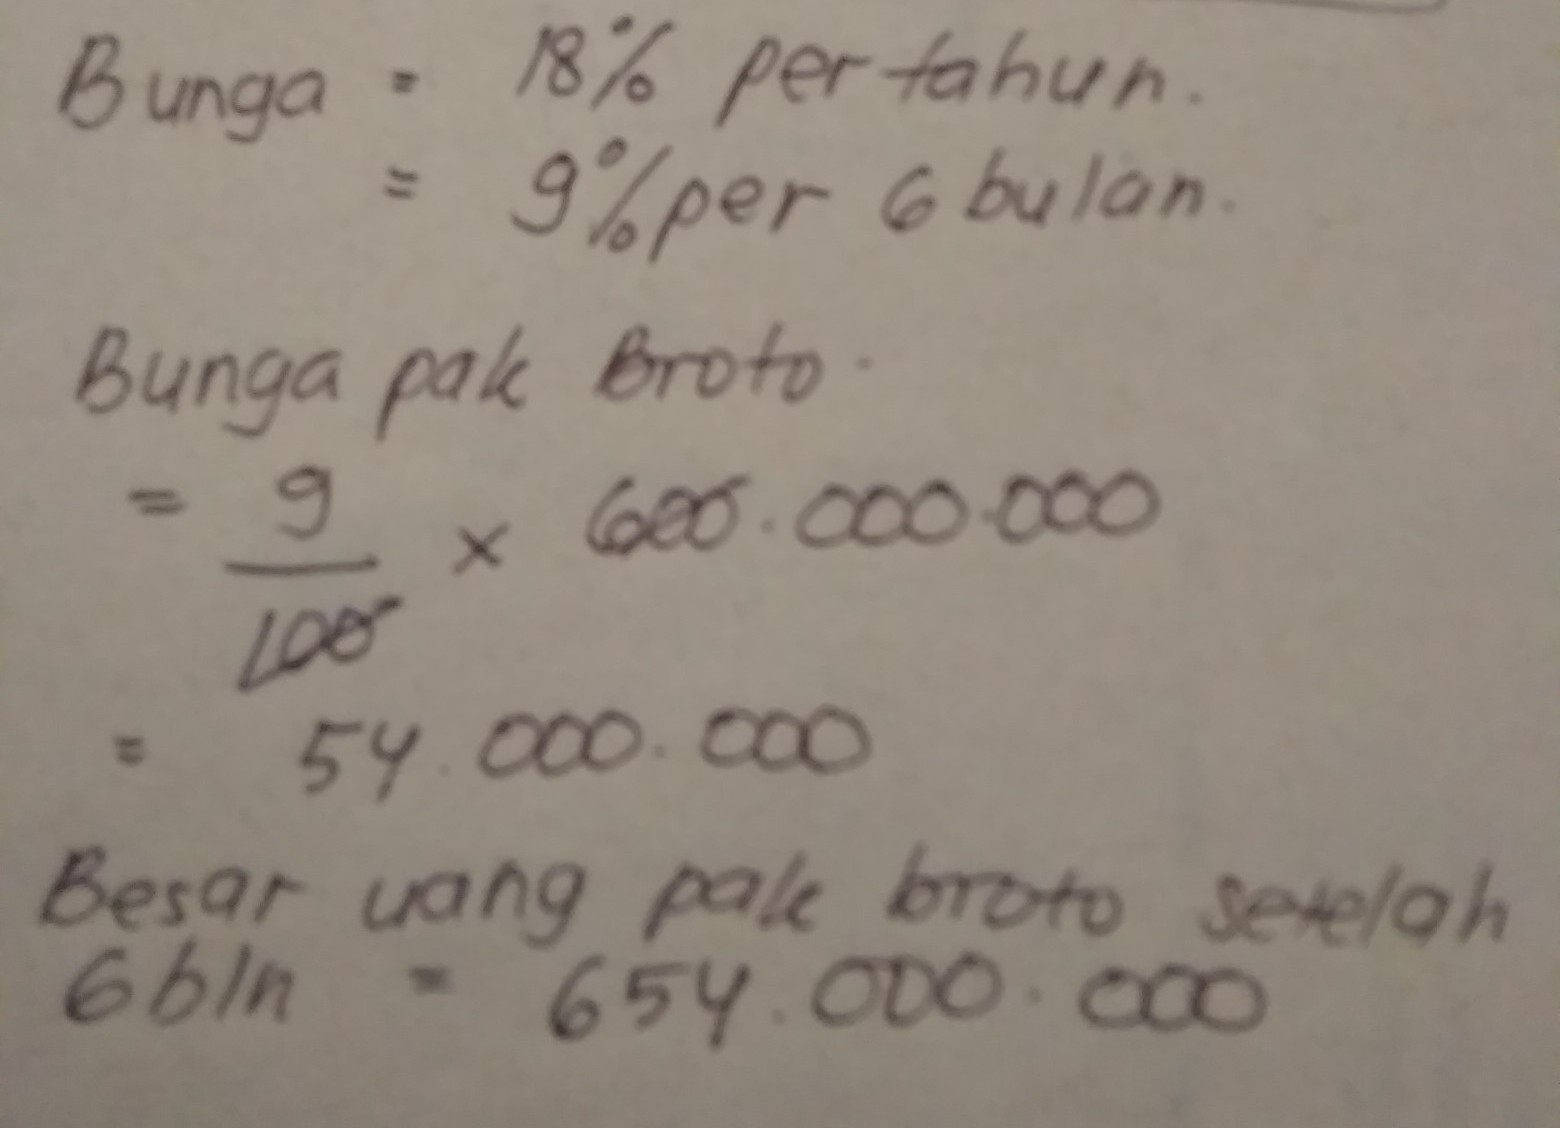 Bunga = 18% per tahun.
= 9% per 6 bulan.
Bunga pak Broto.
= 9/100 × 600.000.000
= 54.000.000
Besar uang pak broto setelah
6 bln = 654.000.000